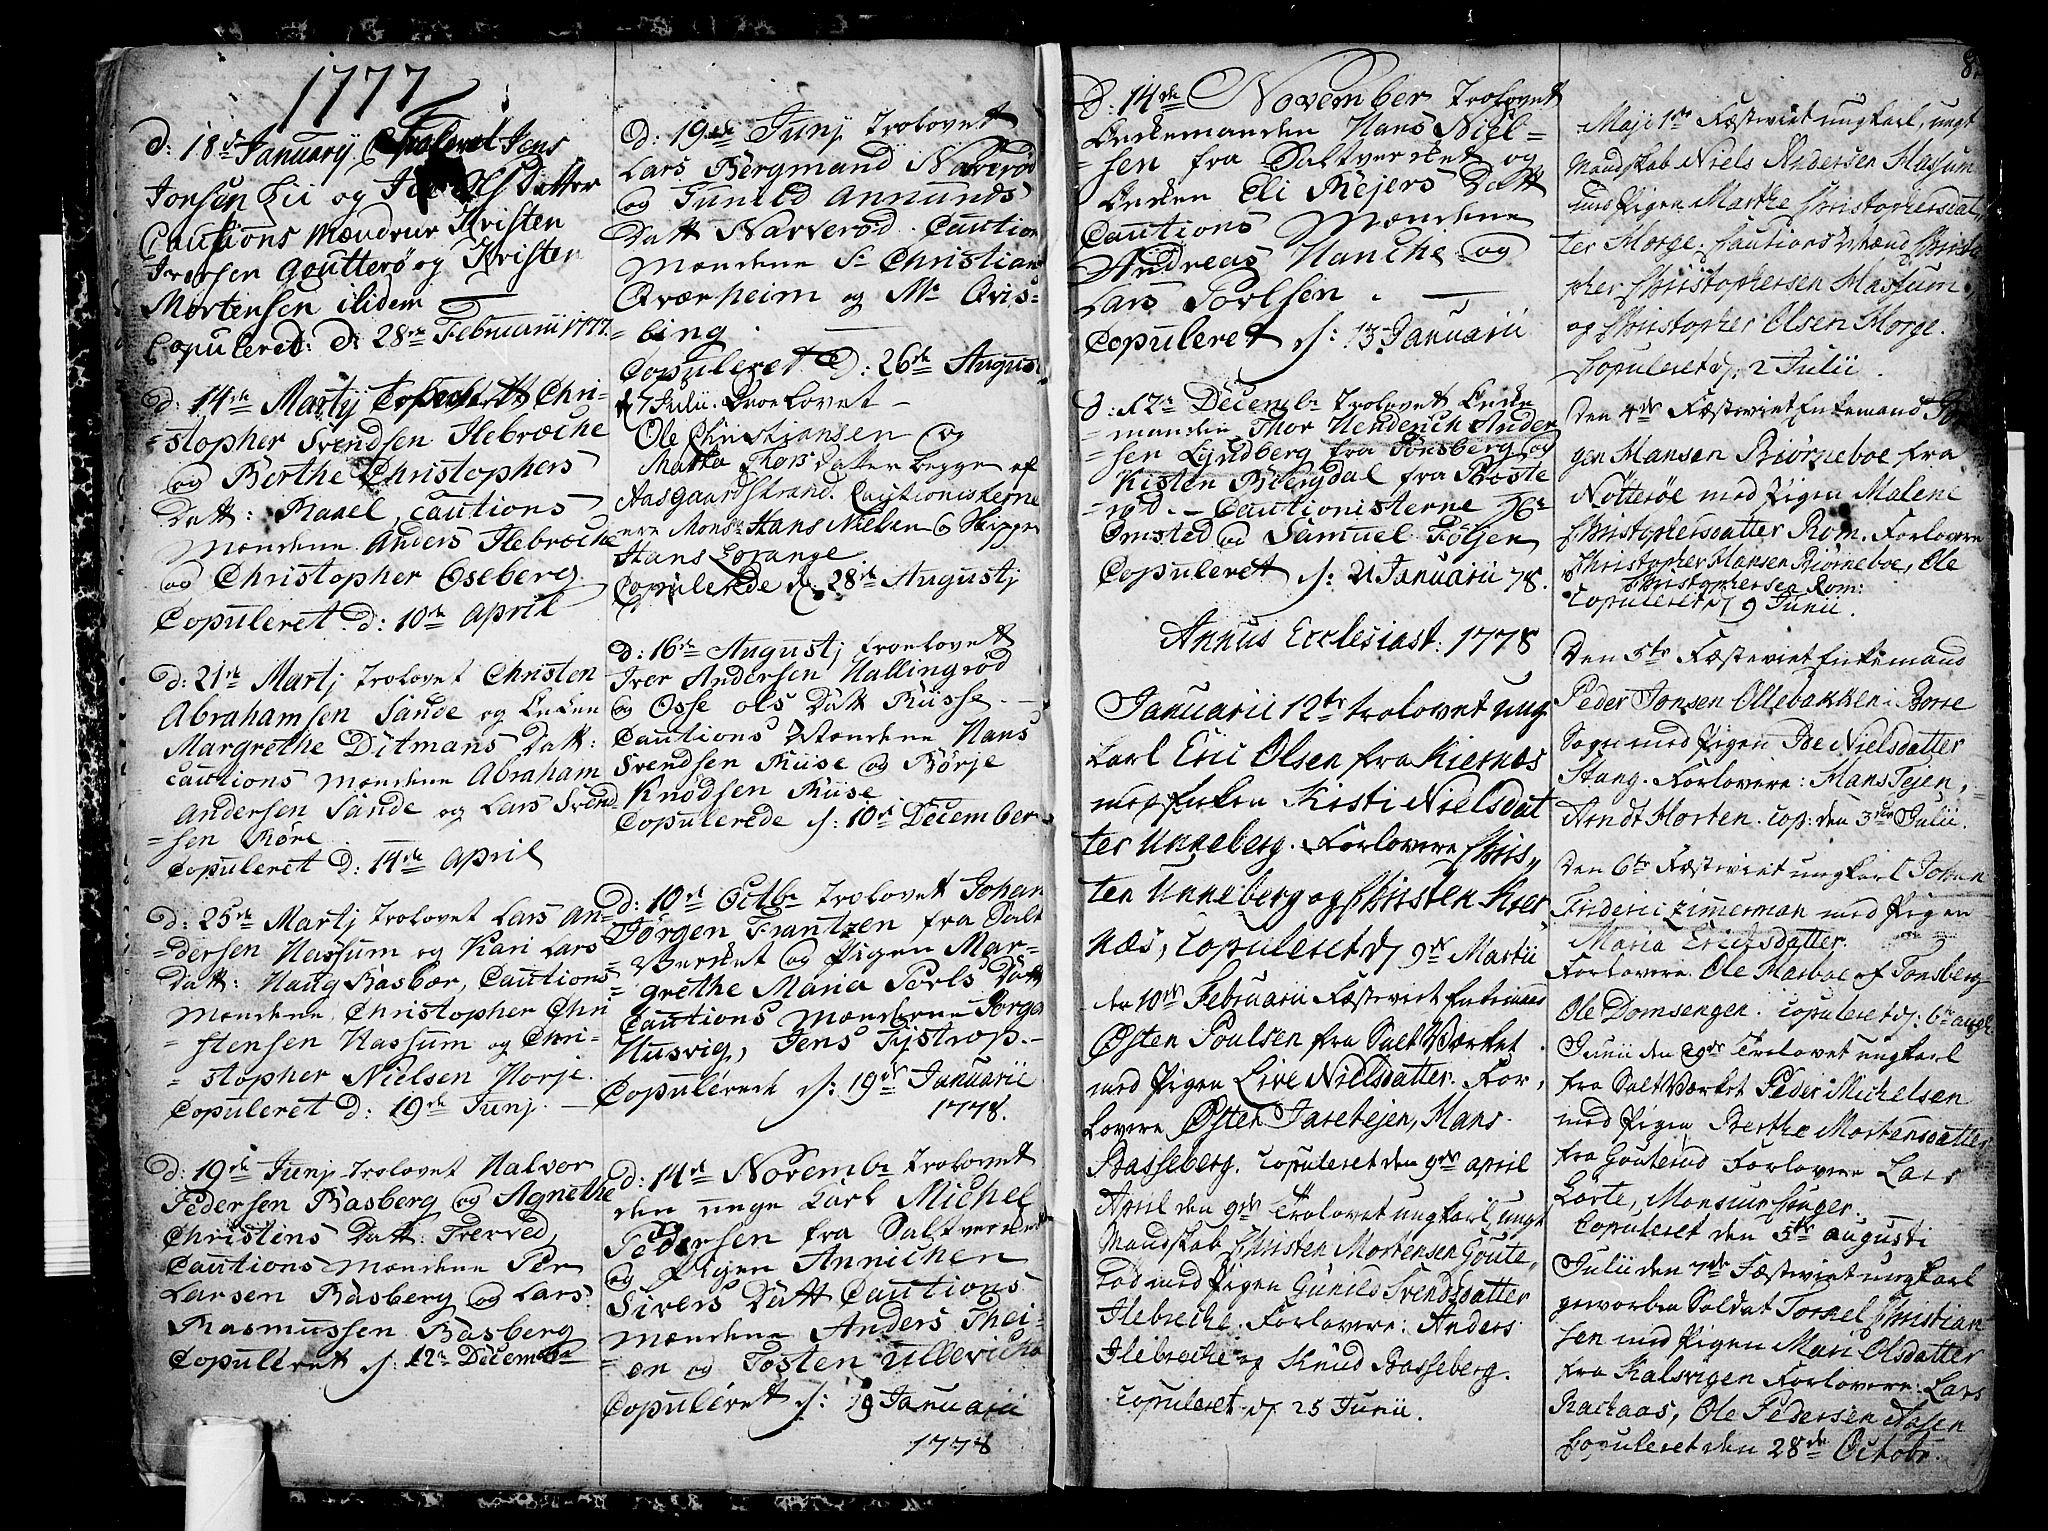 1777
d: 18de January Trolovet Jens
Jonsen Lii og Ols Datter
Cautions Mændene Kristen
Iversen Goutterø og Kristen
Mortensen ibidem
Copuleret: d: 28de Februarii 1777.
d: 14de Martj Chri-
-stopher Svendsen Ilebreche
og Berthe Christophers
Datt: Ramel, Cautions
Mændene Anders Ilebreche
og Christopher Oseberg.
Copuleret d: 10de April
d: 21de Martj Trolovet Christen
Abrahamsen Sande og Enken
Margrethe Ditmans Datt:
Cautions Mændene Abraham
Andersen Sande og Lars Svend
-sen Røre
Copuleret d: 14de April
d: 25de Martj Trolovet Lars An-
-dersen Hassum og Kari Lars
Datt: Haug Basbær, Cautions
Mændene Christopher Chri
-stensen Hassum og Chri-
-stopher Nielsen Horje.
Copuleret d: 19de Junj.
d: 19de Junj Trolovet Halvor
Pedersen Basberg og Agnethe
Christens Datt: Frerød,
Cautions Mændene Per
Larsen Basberg og Lars
Rasmussen Basberg
Copuleret d: 12te Decembr
d: 19de Junj Trolovet
Lars Bergmand Narverød
og Gunild Annunds
Datt Narverød. Caution
Mændene Sr Christian
Qværheim og Mr Qvis-
-ling.
Copuleret d: 26de August
d 7 Julii. Troelovet
Ole Christiansen og
Marta Thorsdatter begge af
Aasgaardstrand. Cautionisterne
ere Monsr Hans Nielsen & Skipper
Hans Lorange
Copulerede d: 28de Augustj
d: 16de Augustj Troelovet
Iver Andersen Hallingrød
og Osse Ols Datt Russe.
Cautions Mændene Hans
Svendsen Ruse og Børje
Knudsen Ruse
Copulerede d: 10de December
d: 10de Octbr Trolovet Johan
Jørgen Frantzen fra Salt
Verket og Pigen Mar-
-grethe Maria Perls Datt
Cautions Mændene Jørgen
Husvig, Jens Tystrop.
Copuleret d: 19de Januarii
1778.
d: 14de Novembr Trolovet
den unge Karl Michel
Pedersen fra Saltverket
og Pigen Annichen
Sivers Datt Cautions
Mændene Anders Thei-
-en og Tosten Ullevichen
Copuleret d: 19 Januarii
1778
d: 14de November Trolovet
Enkemanden Hans Niel-
-sen fra Saltverket og
Enken Eli Rejers Datt
Cautions Mændene
Andreas Hanche og
Lars Povlsen.
Copuleret d: 13 Januarii
d: 12te Decembr Trolovet Enke
-manden Thor Henderich Ander
-sen Lyndberg fra Tønsberg og
Kisten Biergdal fra Roste
-rød. Cautionisterne
Omsted og Samuel Følsen
Copuleret d: 21 Januarii 78.
Annus Ecclesiast: 1778
Januarii 12te trolovet ung
Karl Eric Olsen fra Kiernæs
med Enken Kirsti Nielsdat
ter Unneberg. Forlovere Chris,,
ten Unneberg og Christen Kier
næs, Copuleret d 9de Martii
den 10de Februarii Fæsteviet Enkemand
Østen Poulsen fra Salt Værket
med Pigen Live Nielsdatter. For,
lovere Østen Jarebejen, Hans
Basseberg. Copuleret den 9de April
April den 9de Trolovet ungkarl, ungt
Mandskab Christen Mortensen Goute,
rød med Pigen Gunild Svendsdatter
Ilebreche. Forlovere: Anders
Ilebreche og Knud Basseberg.
Copuleret d 25 Junii.
8
Maji 1ste Fæsteviet ungkarl, ungt
Mandskab Niels Andersen Hassum
med Pigen Marthe Christophersdat,,
ter Horge. Cautions Mænd Christo
pher Christophersen Hassum
og Christopher Olsen Horge.
Copuleret d. 2 Julii.
Den 4de Fæsteviet Enkemand Jør
gen Hansen Biørneboe fra
Nøtterøe med Pigen Malene
Christophersdatter Rom. Forlovere
Christopher Hansen Biørneboe, Ole
Christophersen Rom:
Copuleret d 9 Junii.
Den 5te Fæsteviet Enkemand
Peder Jonsen Ollebakken i Borre
Sogn med Pigen Boe Nielsdatter
Stang. Forlovere: Hans Tejen,
Arndt Horten. Cop: den 3die Julii.
Den 6te Fæsteviet ungkarl Johan
Frideric Zimerman med Pigen
Maria Ericksdatter.
Forlovere Ole Aasboe af Tønsberg
Ole Domsengen. Copuleret d: 6te augt.
Junii den 29de Trolovet ungkarl
fra Salt Værket Peder Michelsen
med Pigen Berthe Mortensdatter
fra Gouterød Forlovere Lars
Korte, Monsieur Unger.
Copuleret den 5te augusti
Julii den 7de Fæsteviet ungkarl
geworben Soldat Tornel Christian
sen med Pigen Mari Olsdatter
fra Kalsvigen Forlovere: Lars
Rachaas, Ole Pedersen Aasen
Copuleret den 28de Octobr.